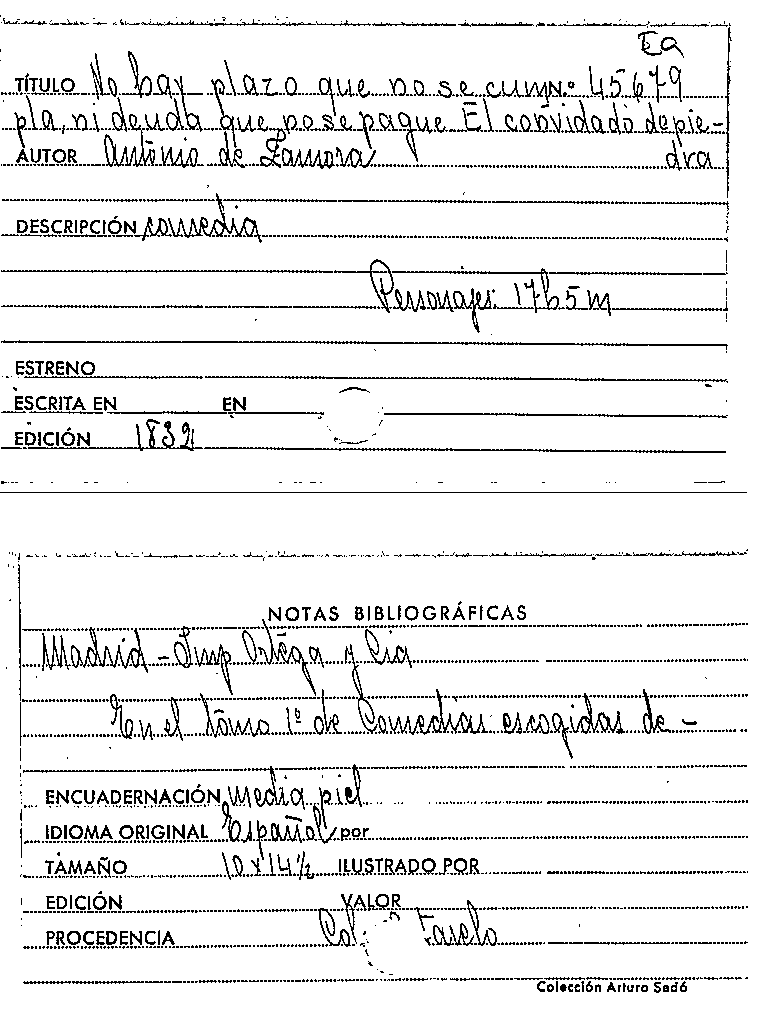 Ea
TÍTULO No hay plazo que no se cum N.º 45679
pla, ni deuda que no se pague El convidado de pie-
AUTOR Antonio de Zamora dra
DESCRIPCIÓN comedia
Personajes: 17h 5m
ESTRENO
ESCRITA EN EN
EDICIÓN 1832
NOTAS BIBLIOGRÁFICAS
Madrid - Imp Ortega y Cia
En el tomo 1º de Comedias escogidas de -
ENCUADERNACIÓN media piel
IDIOMA ORIGINAL Español por
TAMAÑO 10 x 14 ½ ILUSTRADO POR
EDICIÓN VALOR
PROCEDENCIA Col.
Colección Arturo Sedó